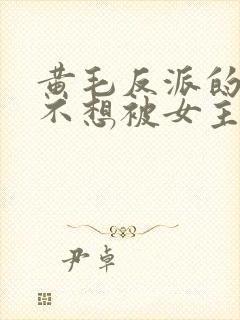 黄毛反派的
不想被女主
尹卓